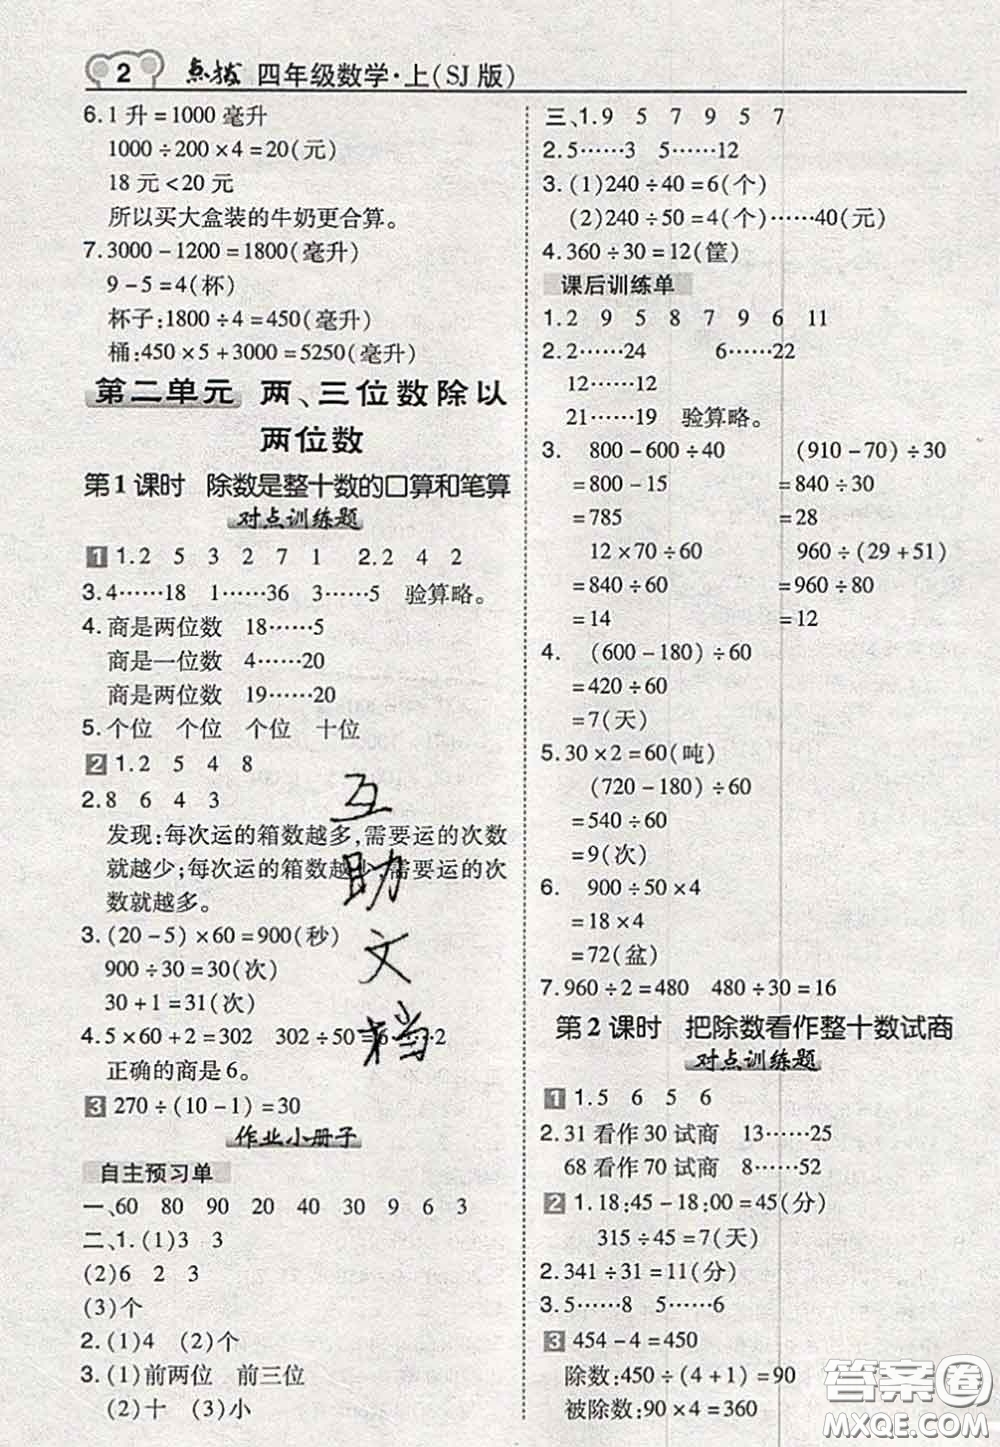 2 点拨 四年级数学·上(SJ版)
6. 1升=1000毫升
1000÷200×4=20(元)
18元<20元
所以买大盒装的牛奶更合算。
7. 3000-1200=1800(毫升)
9-5=4(杯)
杯子:1800÷4=450(毫升)
桶:450×5+3000=5250(毫升)
第二单元 两、三位数除以
两位数
第1课时 除数是整十数的口算和笔算
对点训练题
1 1. 2 5 3 2 7 1 2. 2 4 2
3. 4……18 1……36 3……5 验算略。
4. 商是两位数 18……5
商是一位数 4……20
商是两位数 19……20
5. 个位 个位 个位 十位
2 1. 2 5 4 8
2. 8 6 4 3
发现:每次运的箱数越多,需要运的次数
就越少;每次运的箱数越少,需要运的次
数就越多。
3. (20-5)×60=900(秒)
900÷30=30(次)
30+1=31(次)
4. 5×60+2=302 302÷50=6……2
正确的商是6。
3 270÷(10-1)=30
作业小册子
自主预习单
一、60 80 90 20 30 30 9 6 3
二、1. (1)3 3
(2)6 2 3
(3)个
2. (1)4 (2)个
3. (1)前两位 前三位
(2)十 (3)小
三、1. 9 5 7 9 5 7
2. 5……3 5……12
3. (1)240÷40=6(个)
(2)240÷50=4(个)……40(元)
4. 360÷30=12(筐)
课后训练单
1. 2 9 5 8 7 9 6 11
2. 2……24 6……22
12……12
21……19 验算略。
3. 800-600÷40 (910-70)÷30
=800-15 =840÷30
=785 =28
12×70÷60 960÷(29+51)
=840÷60 =960÷80
=14 =12
4. (600-180)÷60
=420÷60
=7(天)
5. 30×2=60(吨)
(720-180)÷60
=540÷60
=9(次)
6. 900÷50×4
=18×4
=72(盆)
7. 960÷2=480 480÷30=16
第2课时 把除数看作整十数试商
对点训练题
1 1. 5 6 5 6
2. 31看作30试商 13……25
68看作70试商 8……52
2 1. 18:45-18:00=45(分)
315÷45=7(天)
2. 341÷31=11(分)
3. 5……8 5……6
3 454-4=450
除数:450÷(4+1)=90
被除数:90×4=360
互助文档
答案圈
MXQE.COM